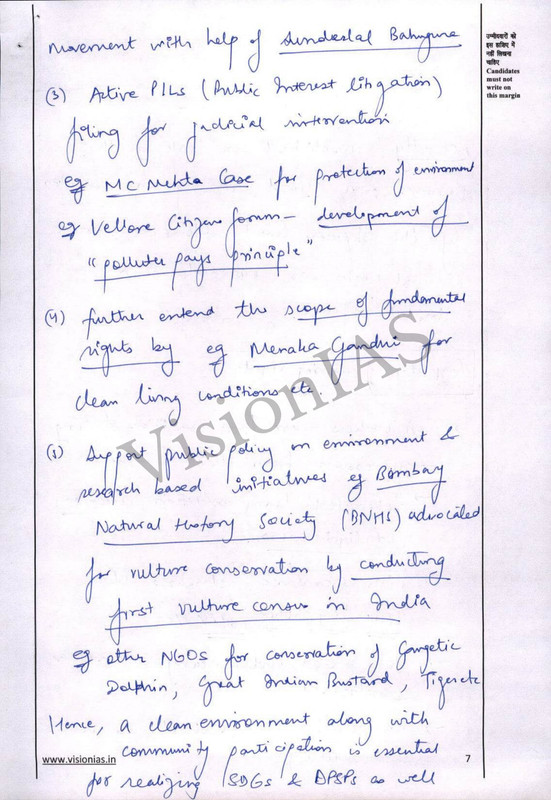 movement with help of Sunderlal Bahuguna
(3) Active PILs (Public Interest litigation)
filing for judicial intervention
eg MC Mehta Case for protection of environment
eg Vellore Citizens forum - development of
"polluter pays principle"
(4) further extend the scope of fundamental
rights by eg Menaka Gandhi for
clean living conditions etc.
VisionIAS
(5) Support public policy on environment &
research based initiatives eg Bombay
Natural History Society (BNHS) advocated
for vulture conservation by conducting
first vulture census in India
eg other NGOs for conservation of Gangetic
Dolphin, Great Indian Bustard, Tiger etc
Hence, a clean environment along with
community participation is essential
for realizing SDGs & DPSPs as well
उम्मीदवारों को
इस हाशिए में
नहीं लिखना
चाहिए
Candidates
must not
write on
this margin
www.visionias.in
7